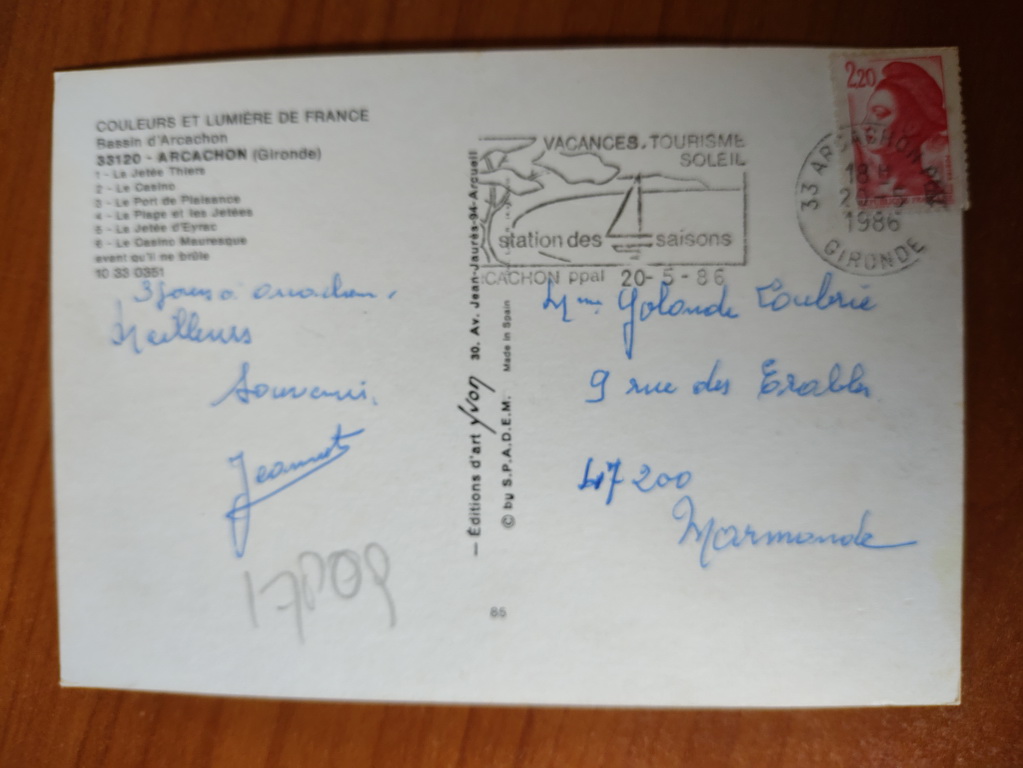 COULEURS ET LUMIÈRE DE FRANCE
Bassin d'Arcachon
33120 - ARCACHON (Gironde)
1 - La Jetée Thiers
2 - Le Casino
3 - Le Port de Plaisance
4 - La Plage et les Jetées
5 - La Jetée d'Eyrac
6 - Le Casino Mauresque
avant qu'il ne brûle
10 33 0351
3 jours à Arcachon.
Meilleurs
Souvenirs.
Jeannot
— Éditions d'art yvon 30, Av. Jean-Jaurès-94-Arcueil
© by S.P.A.D.E.M. Made in Spain
85
VACANCES. TOURISME
SOLEIL
station des saisons
CACHON ppal 20-5-86
2,20
33 ARCACHON PPAL
18 H
20-5
1986
GIRONDE
Mme Yolande
9 rue des Erables
47200
Marmande